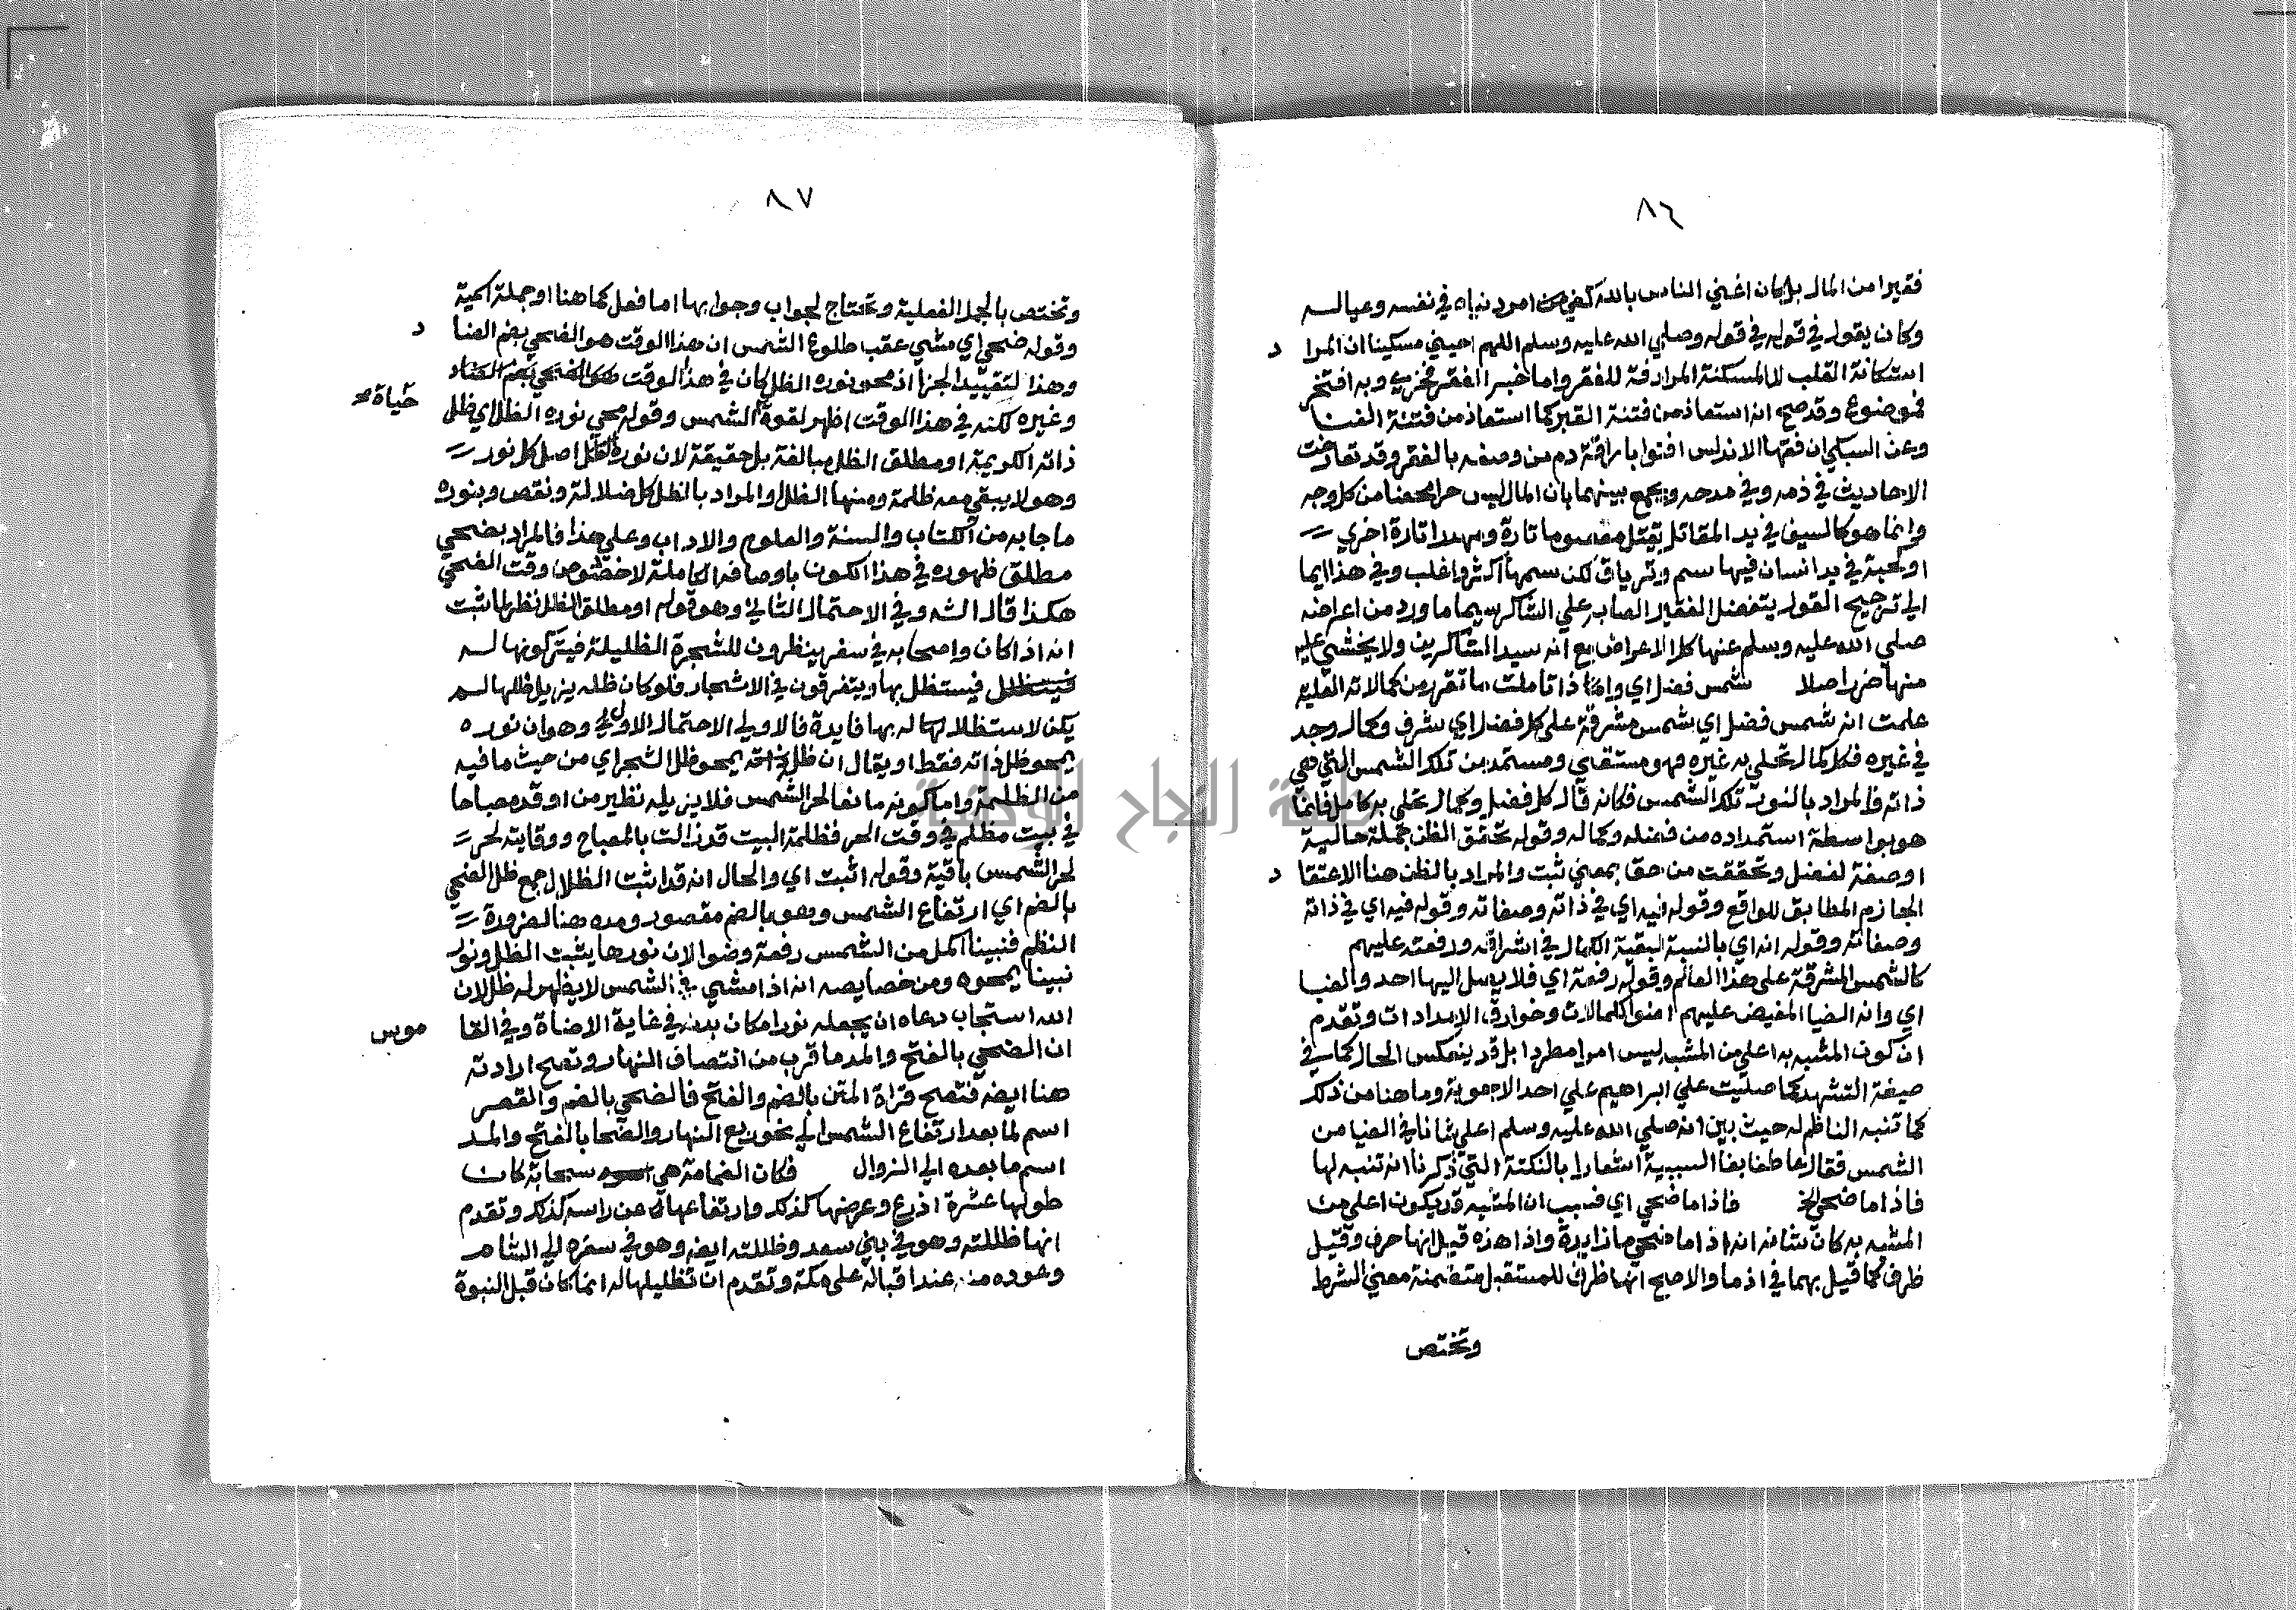 ٨٦
فقيرا من المال بل كان اغني الناس بالله كفي من امر دنياه في نفسه وعياله
وكان يقول في قوله في قوله وصلي الله عليه وسلم اللهم احيني مسكينا ان المرا د
استكانة القلب لا المسكنة المرادفة للفقر واما خبر الفقر فخري وبه افتخر
فموضوع وقد صح انه استعاذ من فتنة الفقر كما استعاذ من فتنة الغنا
وعن السبكي ان فقها الاندلس افتوا باراقة دم من وصفه بالفقر وقد تعارضت
الاحاديث في ذمه وفي مدحه ويجمع بينهما بان المال ليس حرا محضا من كل وجه
وانما هو كالسيف في يد المقاتل يقتل معصوما تارة ومهدرا تارة اخري
او كحية في يد انسان فيها سم وترياق لكن سمها اكثر واغلب وفي هذا ايما
الي ترجيح القول بتفضيل الفقير الصابر علي الشاكر سيما ما ورد من اعراضه
صلي الله عليه وسلم عنها كل الاعراض مع انه سيد الشاكرين ولا يخشي عليه
منها ضررا صلا شمس فضل اي واذا تاملت ما تقرر من كمالاته العلية
علمت انه شمس فضل اي شمس مشرقة على كل فضل اي شرف وكمال وجد
في غيره فكل كمال تحلي به غيره فهو مستقي ومستمد من تلك الشمس التي هي
ذاته والمراد بالنور تلك الشمس فكانه قال كل فضل وكمال تحلي به كامل فانما
هو بواسطة استمداده من فضله وكماله وقوله تحقق الظن جملة حالية
او صفة لفضل وتحققت من حق بمعني ثبت والمراد بالظن هنا الاعتقا د
الجازم المطابق للواقع وقوله فيه اي في ذاته وصفاته وقوله فيه اي في ذاته
وصفاته وقوله انه اي بالنسبة لبقية الكمال في اشراقه ورفعته عليهم
كالشمس المشرقة على هذا العالم وقوله رفعة اي فلا يصل اليها احد والضيا
اي وانه الضيا المفيض عليهم اضوا الكمالات وخوارق الامدادات وتقدم
ان كون المشبه به اعلي من المشبه ليس امرا مطردا بل قد ينعكس الحال كما في
صيغة التشهد كما صليت علي ابراهيم علي احد الاجوبة وما هنا من ذلك
كما تنبه الناظم له حيث بين انه صلي الله عليه وسلم اعلي شانا في الضيا من
الشمس فقال عاطفا بفا السببية اشعارا بالنكتة التي ذكرنا انه تنبه لها
فاذا ما ضحي الخ فاذا ما ضحي اي فسبب ان المشبه قد يكون اعلي من
المشبه به كان شانه انه اذا ما ضحي ما زايدة واذا هذه قيل انها حرف وقيل
ظرف كما قيل بهما في اذما والاصح انها ظرف للمستقبل متضمنة معني الشرط
وتختص
٨٧
وتختص بالجمل الفعلية وتحتاج لجواب وجوابها اما فعل كما هنا او جملة اسمية
وقوله ضحي اي مشي عقب طلوع الشمس ان هذا الوقت هو الضحي بضم الضا د
وهذا لتقييد الجزا اذ محو نوره الظل كان في هذا الوقت
وغيره لكنه في هذا الوقت اظهر لقوة الشمس وقوله محي نوره الظل اي ظل
ذاته الكريمة او مطلق الظل مبالغة بل حقيقة لان نوره اصل كل نور
وهو لا يبقي معه ظلمة ومنها الظل والمراد بالظل كل ضلالة ونقص وبنوره
ما جا به من الكتاب والسنة والعلوم والاداب وعلي هذا فالمراد بضحي
مطلق ظهوره في هذا الكون باوصافه الكاملة لا خصوص وقت الضحي
هكذا قال الشه وفي الاحتمال الثاني وهو قوله او مطلق الظل نظر لما ثبت
انه اذا كان واصحابه في سفر ينظرون للشجرة الظليلة فيتركونها له
فيستظل بها ويتفرقون في الاشجار فلو كان ظله يزيل ظلها لم
يكن لاستظلاله بها فايدة فالاولي الاحتمال الاول وهو ان نوره
يمحو ظل ذاته فقط او يقال ان ظل ذاته يمحو ظل الشجر اي من حيث ما فيه
من الظلمة واما كونه مانعا لحر الشمس فلا يزيله نظير من اوقد مصباحا
في بيت مظلم في وقت الحر فظلمة البيت قد زالت بالمصباح ووقايته لحر
لحر الشمس باقية وقوله اثبت اي والحال انه قد اثبت الظلال جمع ظل الضحي
بالضم اي ارتفاع الشمس وهو بالضم مقصور ومده هنا لضرورة
النظم فنبينا اكمل من الشمس رفعة وضوا لان نورها يثبت الظل ونور
نبينا يمحوه ومن خصايصه انه اذا مشي في الشمس لا يظهر له ظل لان
الله استجاب دعاه ان يجعله نورا فكان بدنه في غاية الاضاة وفي القا موس
ان الضحي بالفتح والمد ما قرب من انتصاف النهار وتصح ارادته
هنا ايضه فتصح قراة المتن بالضم والفتح فالضحي بالضم والقصر
اسم لما بعد ارتفاع الشمس الي نحو ربع النهار والضحا بالفتح والمد
اسم ما بعده الي الزوال فكان الغمامة هي سحابة كان
طولها عشرة اذرع وعرضها كذلك وارتفاعها عن راسه كذلك وتقدم
انها ظللته وهو في بني سعد وظللته ايضه وهو في سفره الي الشام
وعوده منه عند اقباله على مكة وتقدم ان تظليلها له انما كان قبل النبوة
طبعة النجاح الوطنية